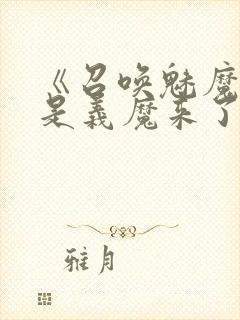 《召唤魅魔
是义魔来了
雅月